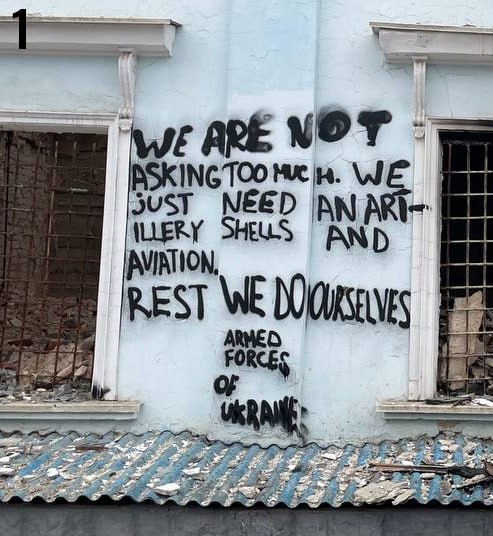 1
WE ARE NOT
ASKING TOO MUCH. WE
JUST NEED AN ART-
ILLERY SHELLS AND
AVIATION.
REST WE DO OURSELVES
ARMED
FORCES
OF
UKRAINE